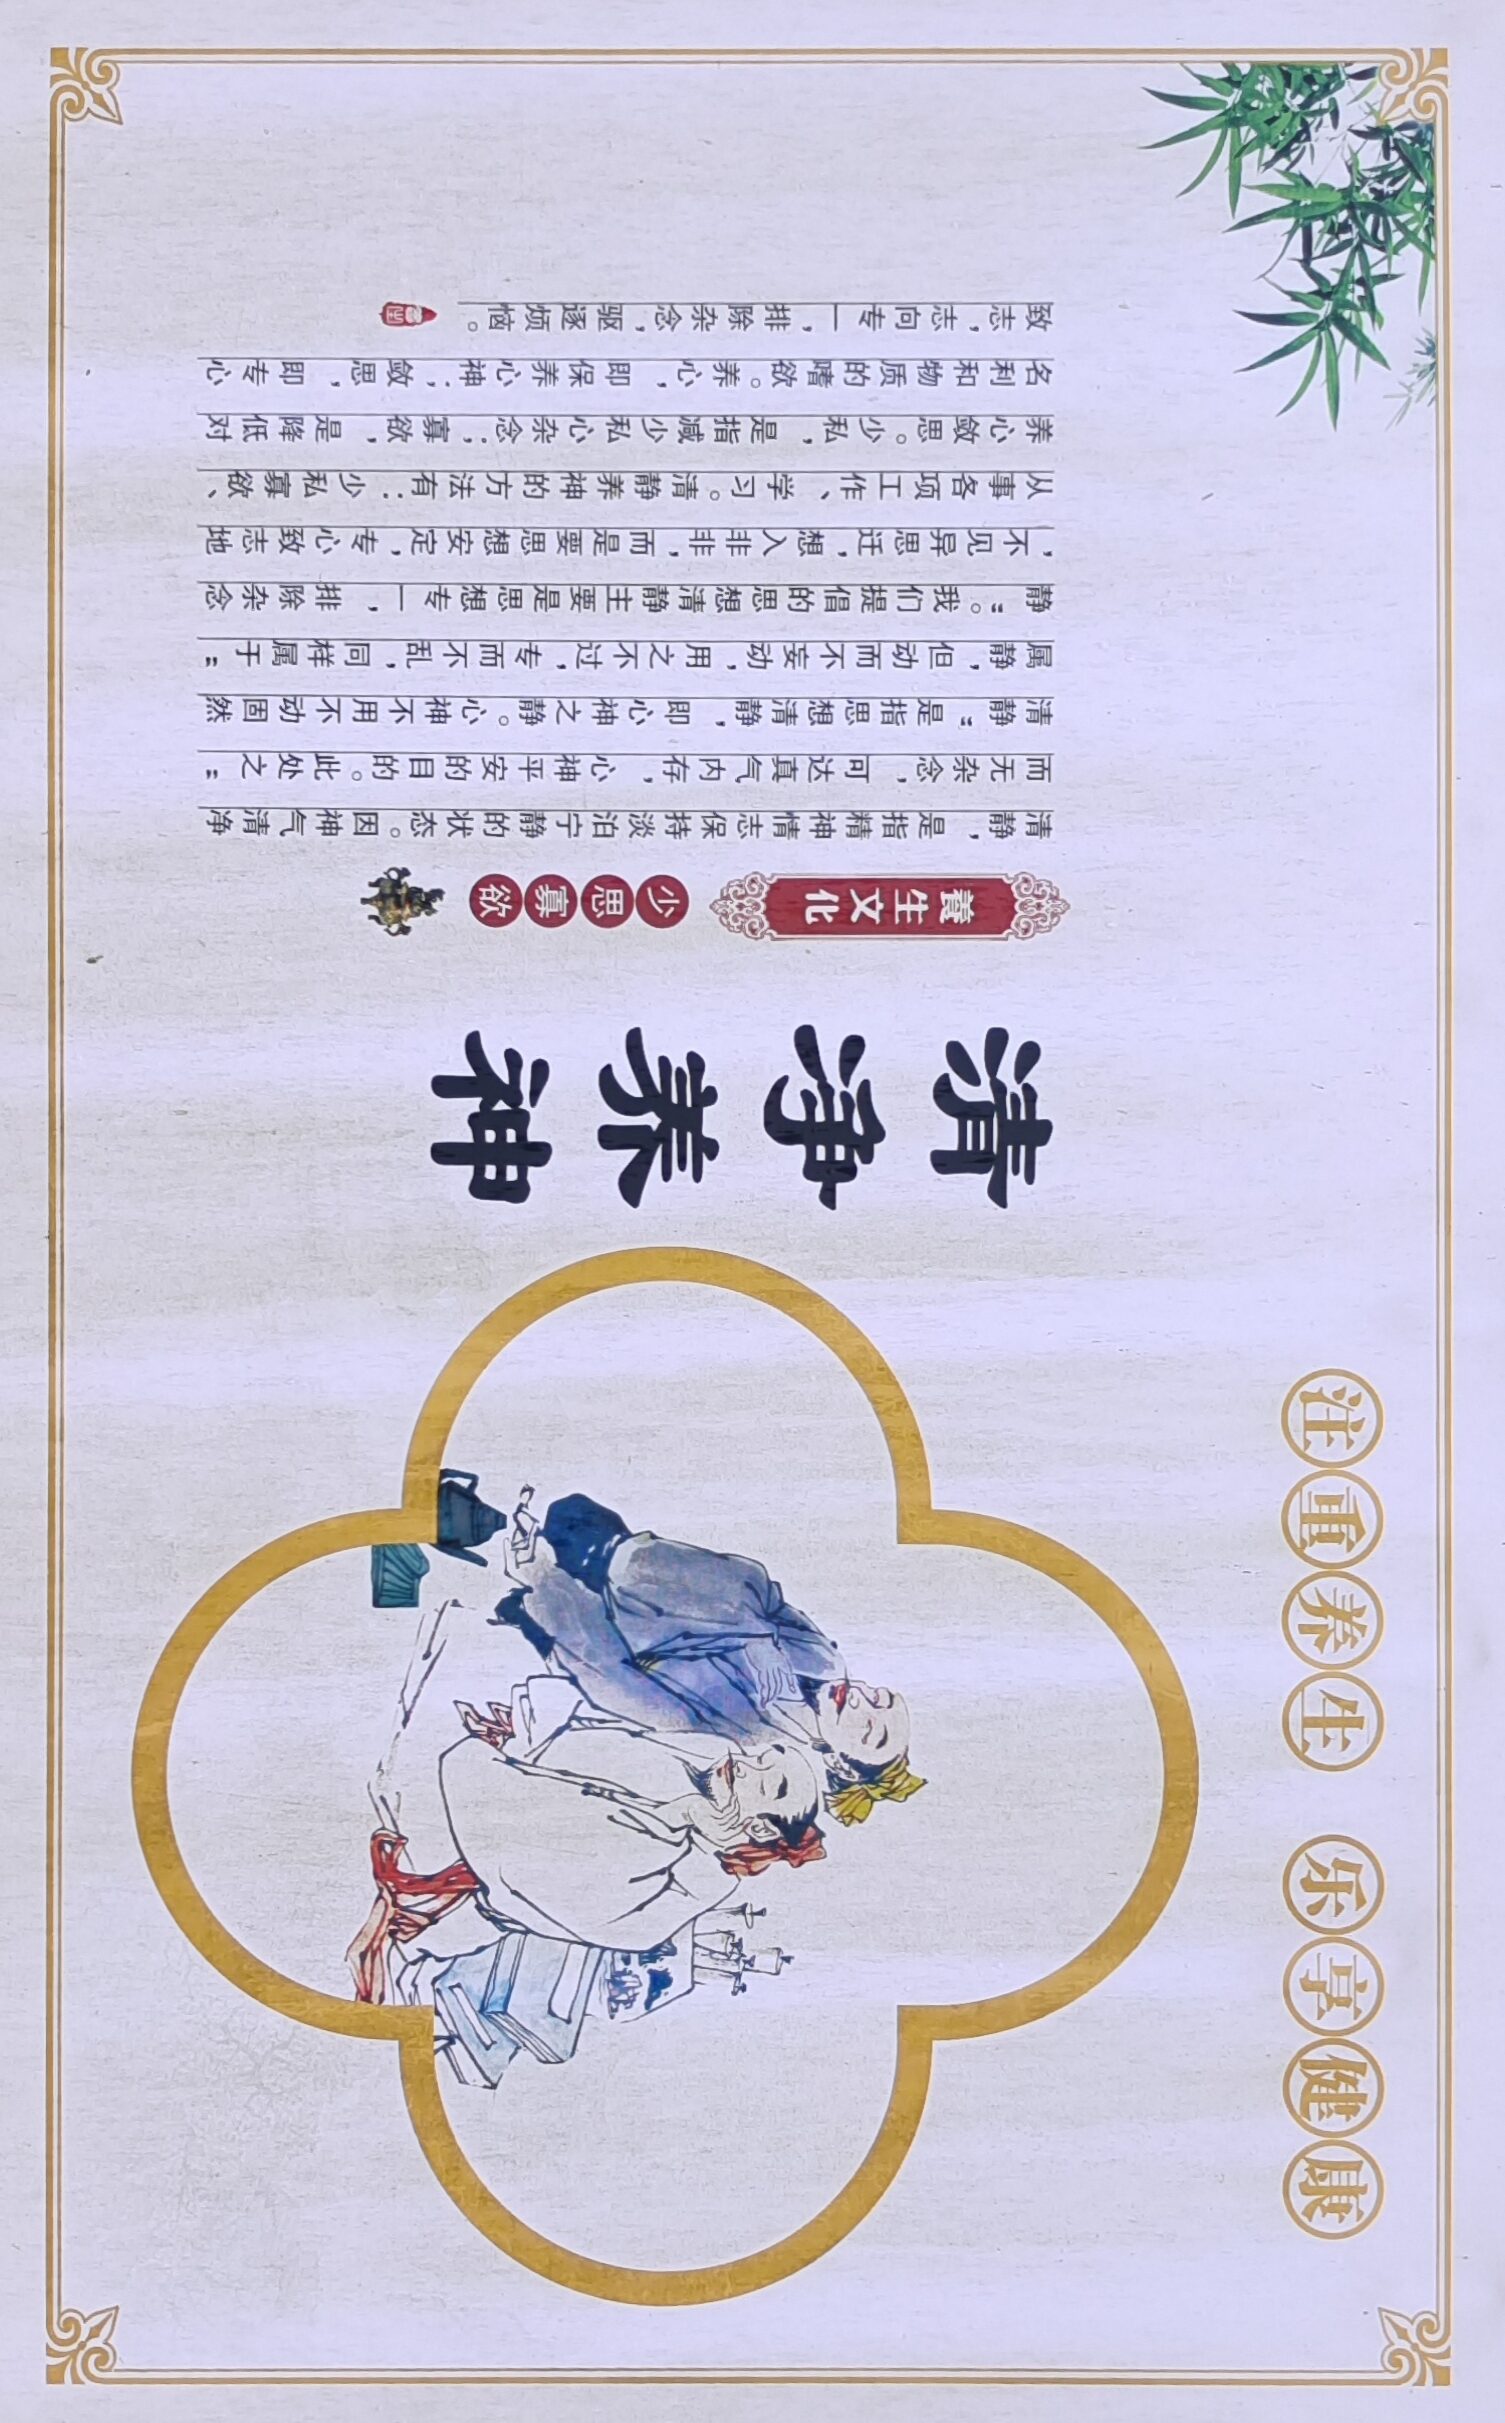 注重养生 乐享健康
清净养神
養生文化
少思寡欲
清静，是指精神情志保持淡泊宁静的状态。因神气清净
而无杂念，可达真气内存，心神平安的目的。此处之“
清静”是指思想清静，即心神之静。心神不用不动固然
属静，但动而不妄动，用之不过，专而不乱，同样属于“
静”。我们提倡的思想清静主要是思想专一，排除杂念
，不见异思迁，想入非非，而是要思想安定，专心致志地
从事各项工作、学习。清静养神的方法有：少私寡欲、
养心敛思。少私，是指减少私心杂念；寡欲，是降低对
名利和物质的嗜欲。养心，即保养心神；敛思，即专心
致志，志向专一，排除杂念，驱逐烦恼。